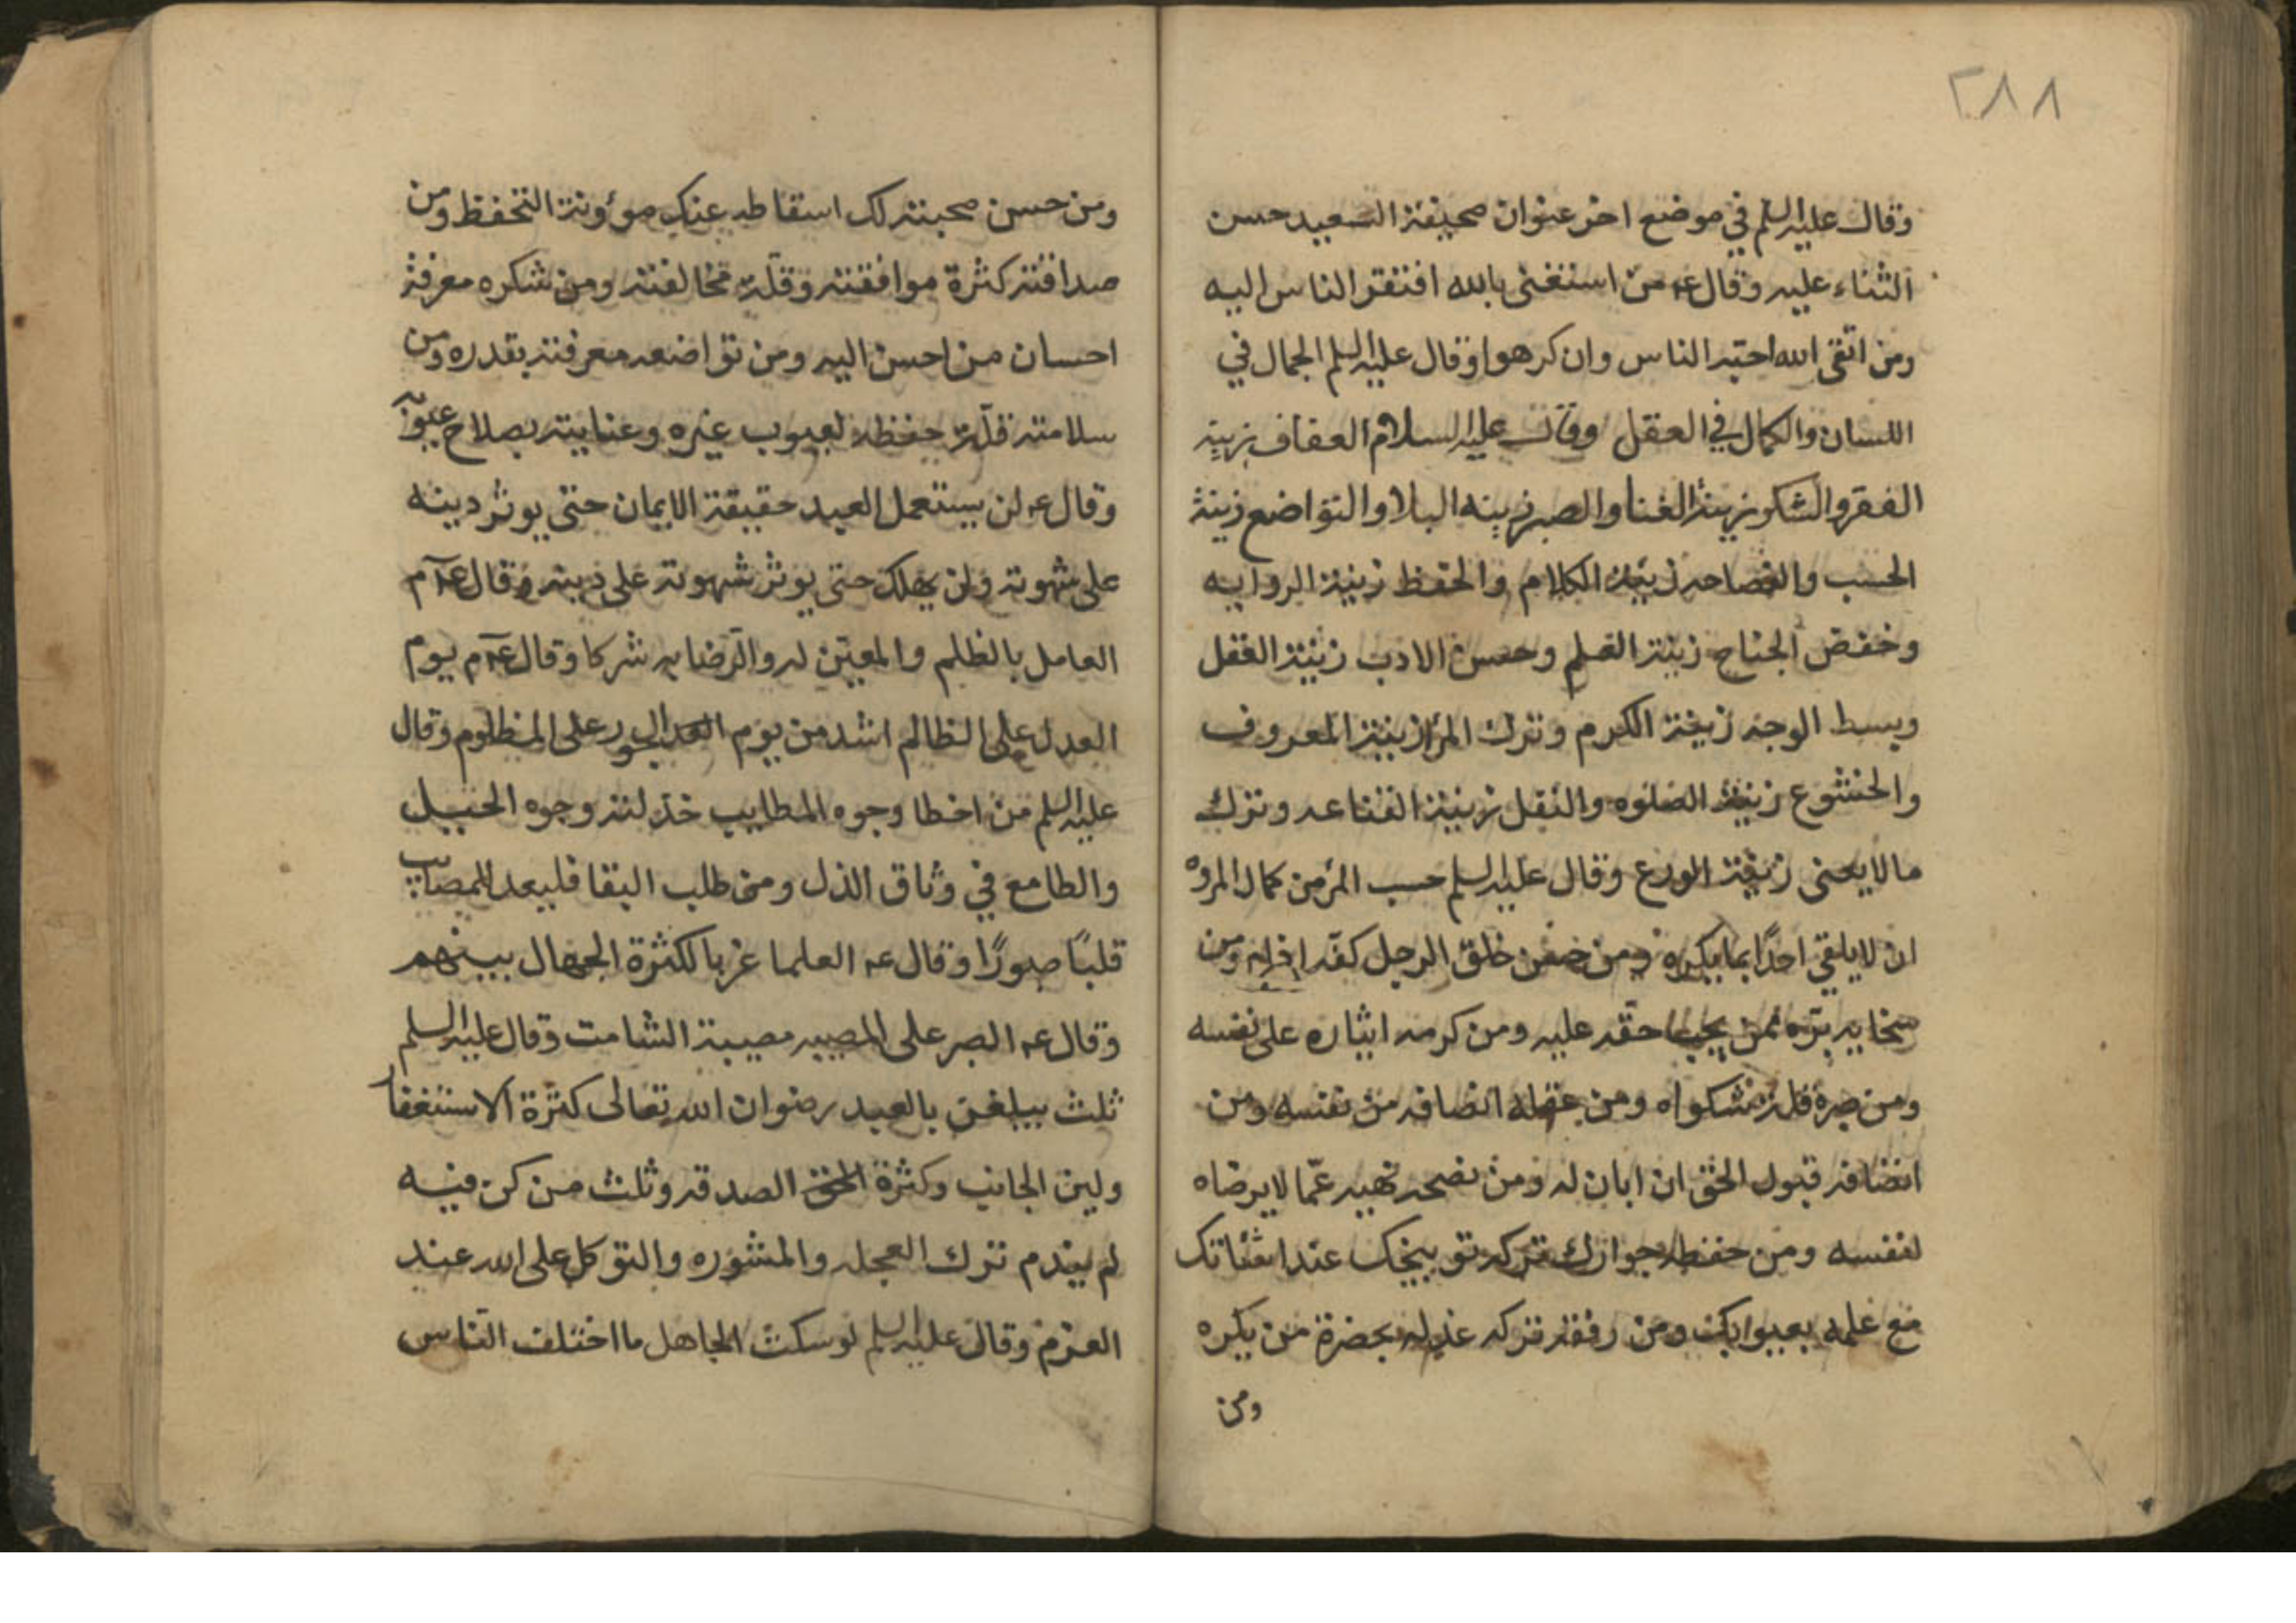 ٢٨٨
وقال عليه السلم في موضع اخر عنوان صحيفة السعيد حسن
الثناء عليه وقال عه من استغنى بالله افتقر الناس اليه
ومن اتقى الله احبه الناس وان كرهوا وقال عليه السلم الجمال في
اللسان والكمال في العقل وقال عليه السلام العفاف زينة
الفقر والشكر زينة الغنا والصبر زينه البلا والتواضع زينة
الحسب والفصاحه زينة الكلام والحفظ زينة الروايه
وخفض الجناح زينة العلم وحسن الادب زينة العقل
وبسط الوجه زينة الكرم وترك المن زينة المعروف
والخشوع زينة الصلوه والنقل زينة القناعه وترك
ما لا يعنى زينة الورع وقال عليه السلم حسب المرء من كمال المروه
ان لا يلقي احدًا بما يكره ومن حسن خلق الرجل كفه اذاه ومن
سخايه بره لمن يجب حقه عليه ومن كرمه ايثاره على نفسه
ومن صبره قلة شكواه ومن عقله انصافه من نفسه ومن
انصافه قبول الحق ان ابان له ومن نصحه نهيه عمّا لا يرضاه
لنفسه ومن حفظه جوارك تركه توبيخك عند
مع علمه بعيوابك ومن رفقه تركه عذله بحضرة من يكره
ومن
ومن حسن صحبته لك اسقاطه عنك مؤونة التحفظ ومن
صداقته كثرة موافقته وقلّة مخالفته ومن شكره معرفة
احسان من احسن اليه ومن تواضعه معرفته بقدره ومن
سلامته قلّة حفظه لعيوب غيره وعنايته بصلاح عيوبه
وقال عه لن يستعمل العبد حقيقة الايمان حتى يوثر دينه
على شهوته ولن يهلك حتى يوثر شهوته على دينه وقال عه م
العامل بالظلم والمعين له والرّضا به شركا وقال عه م يوم
العدل على الظالم اشد من يوم الجور على المظلوم وقال
عليه السلم من اخطا وجوه المطاليب خذلته وجوه الحيل
والطامع في وثاق الذل ومن طلب البقا فليعد للمصايب
قلبًا صبورًا وقال عه العلما غربا لكثرة الجهال بينهم
وقال عه الصبر على المصيبه مصيبة الشامت وقال عليه السلم
ثلث يبلغن بالعبد رضوان الله تعالى كثرة الاستغفا
ولين الجانب وكثرة الصدقه وثلث من كن فيه
لم يندم ترك العجله والمشوره والتوكل على الله عند
العزم وقال عليه السلم لو سكت الجاهل ما اختلف النّاس